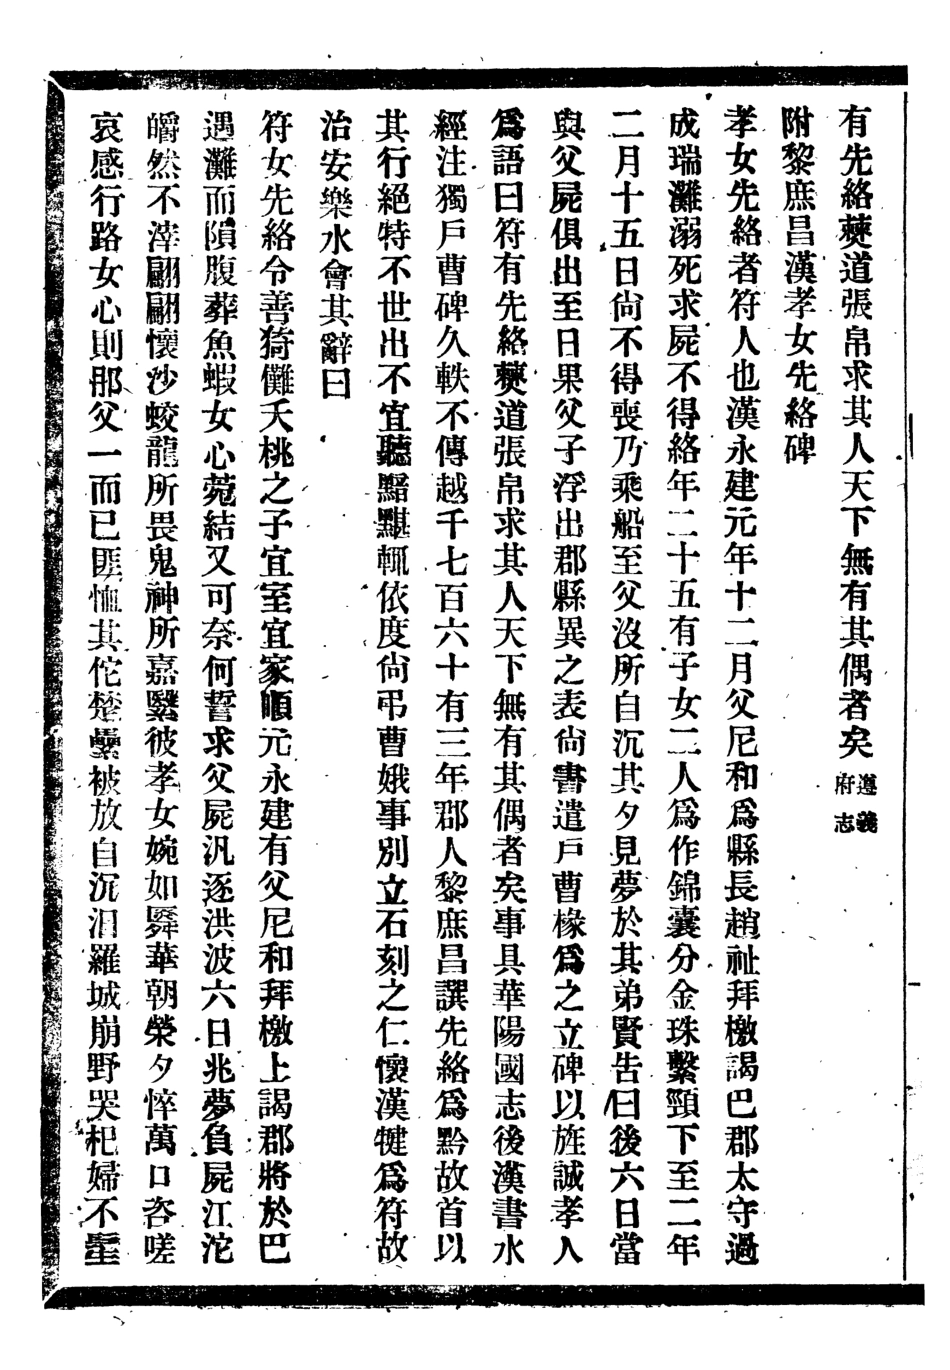 有先絡僰道張帛求其人天下無有其偶者矣遵義府志
附黎庶昌漢孝女先絡碑
孝女先絡者符人也漢永建元年十二月父尼和為縣長趙祉拜檄謁巴郡太守過
成瑞灘溺死求屍不得絡年二十五有子女二人為作錦囊分金珠繫頸下至二年
二月十五日尙不得喪乃乘船至父沒所自沉其夕見夢於其弟賢告曰後六日當
與父屍俱出至日果父子浮出郡縣異之表尙書遣戶曹椽爲之立碑以旌誠孝人
爲語曰符有先絡僰道張帛求其人天下無有其偶者矣事具華陽國志後漢書水
經注獨戶曹碑久軼不傳越千七百六十有三年郡人黎庶昌譔先絡爲黔故首以
其行絕特不世出不宜聽黯黮輒依度尙弔曹娥事別立石刻之仁懷漢犍爲符故
治安樂水會其辭曰
符女先絡令善猗儺夭桃之子宜室宜家順元永建有父尼和拜檄上謁郡將於巴
遇灘而隕腹葬魚蝦女心菀結又可奈何誓求父屍汎逐洪波六日兆夢負屍江沱
皭然不滓翩翩懷沙蛟龍所畏鬼神所嘉繄彼孝女婉如蕣華朝榮夕悴萬口咨嗟
哀感行路女心則那父一而已匪恤其佗楚纍被放自沉汨羅城崩野哭杞婦不髽